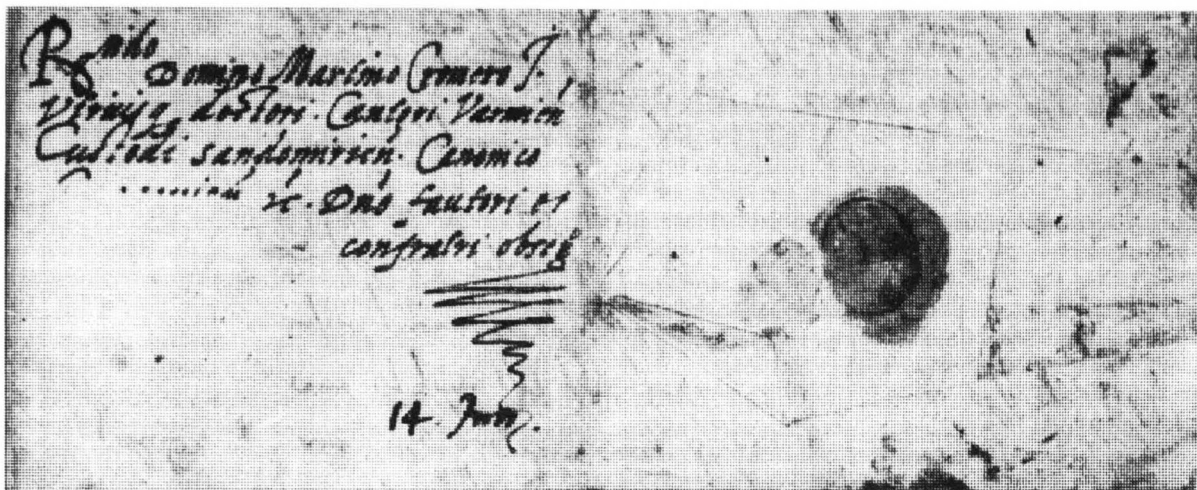 R<sup>ndo</sup>
Domino Martino Cromero J.
Vtriusq doctori. Cantori Varmien
Custodi sandomirien. Canonico
&c. Dno fautori et
confratri obser
14. Junij.